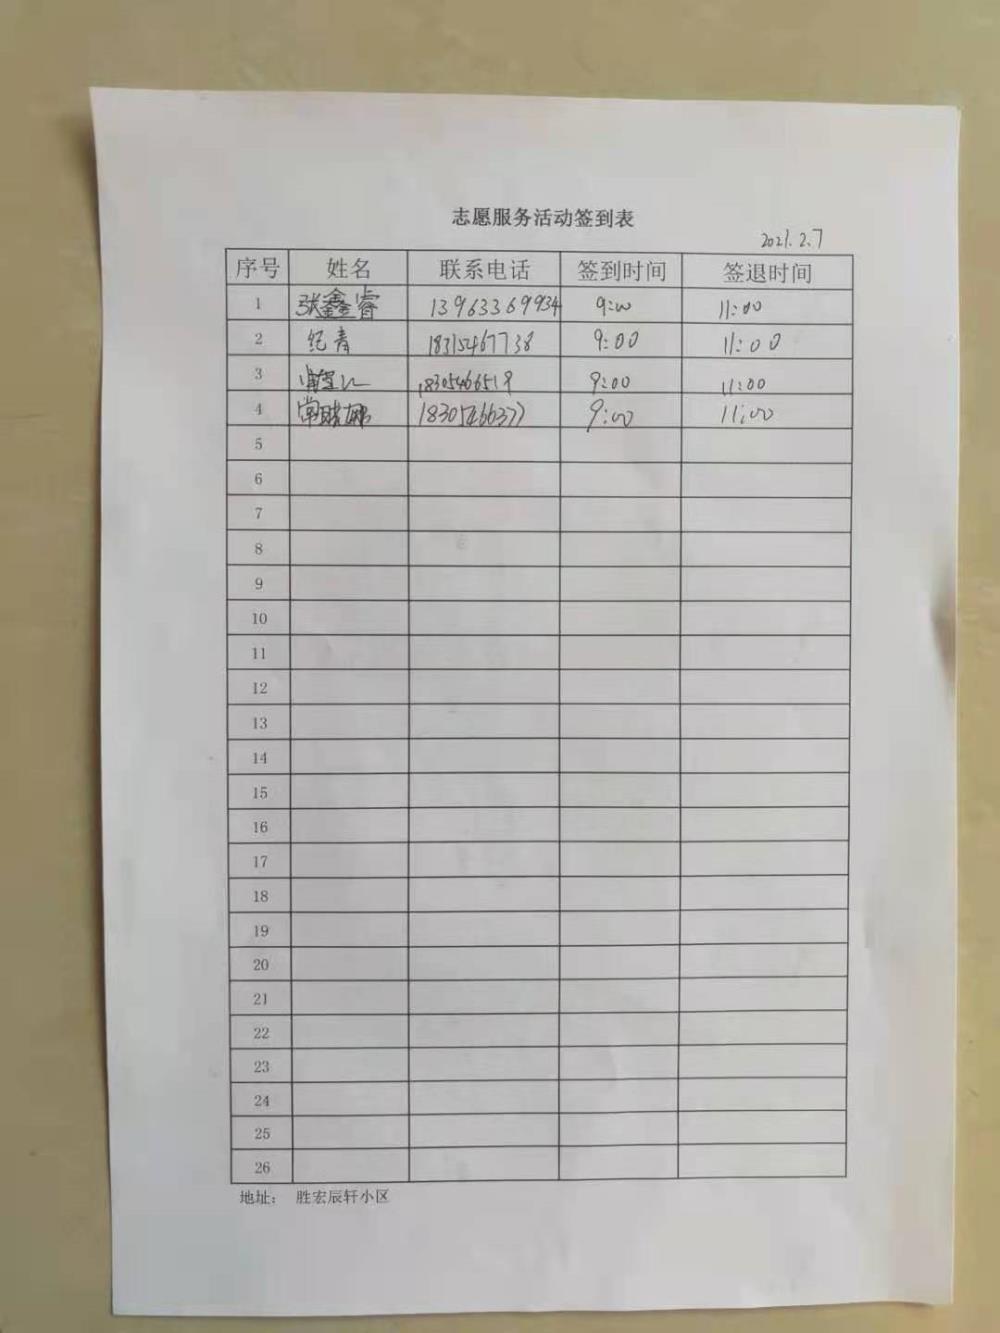 志愿服务活动签到表
2021.2.7
序号 姓名 联系电话 签到时间 签退时间
1 张鑫睿 13963369934 9:00 11:00
2 纪青 18315467738 9:00 11:00
3 9:00 11:00
4 常晓娜 18305466377 9:00 11:00
5
6
7
8
9
10
11
12
13
14
15
16
17
18
19
20
21
22
23
24
25
26
地址： 胜宏辰轩小区